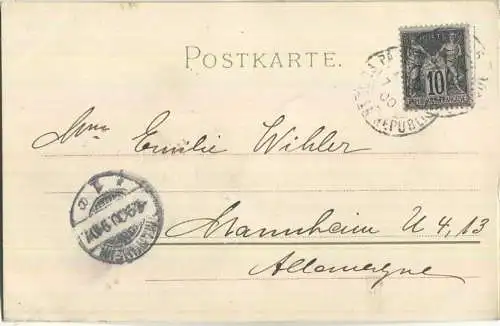 POSTKARTE.
10
REPUBLI
Mme Emilie Wihler
Mannheim U 4, 13
Allemagne
MANNHEIM